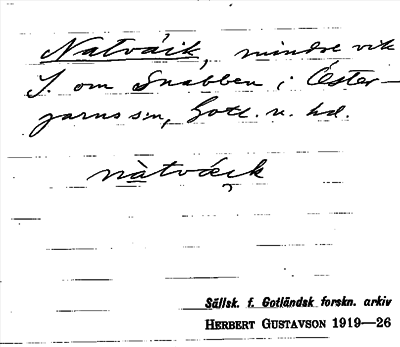 Natväik, mindre vik
S. om Snabben i Öster-
garns sn, Gotl. n. hd.
nàtväik
Sällsk. f. Gotländsk forskn. arkiv
HERBERT GUSTAVSON 1919—26